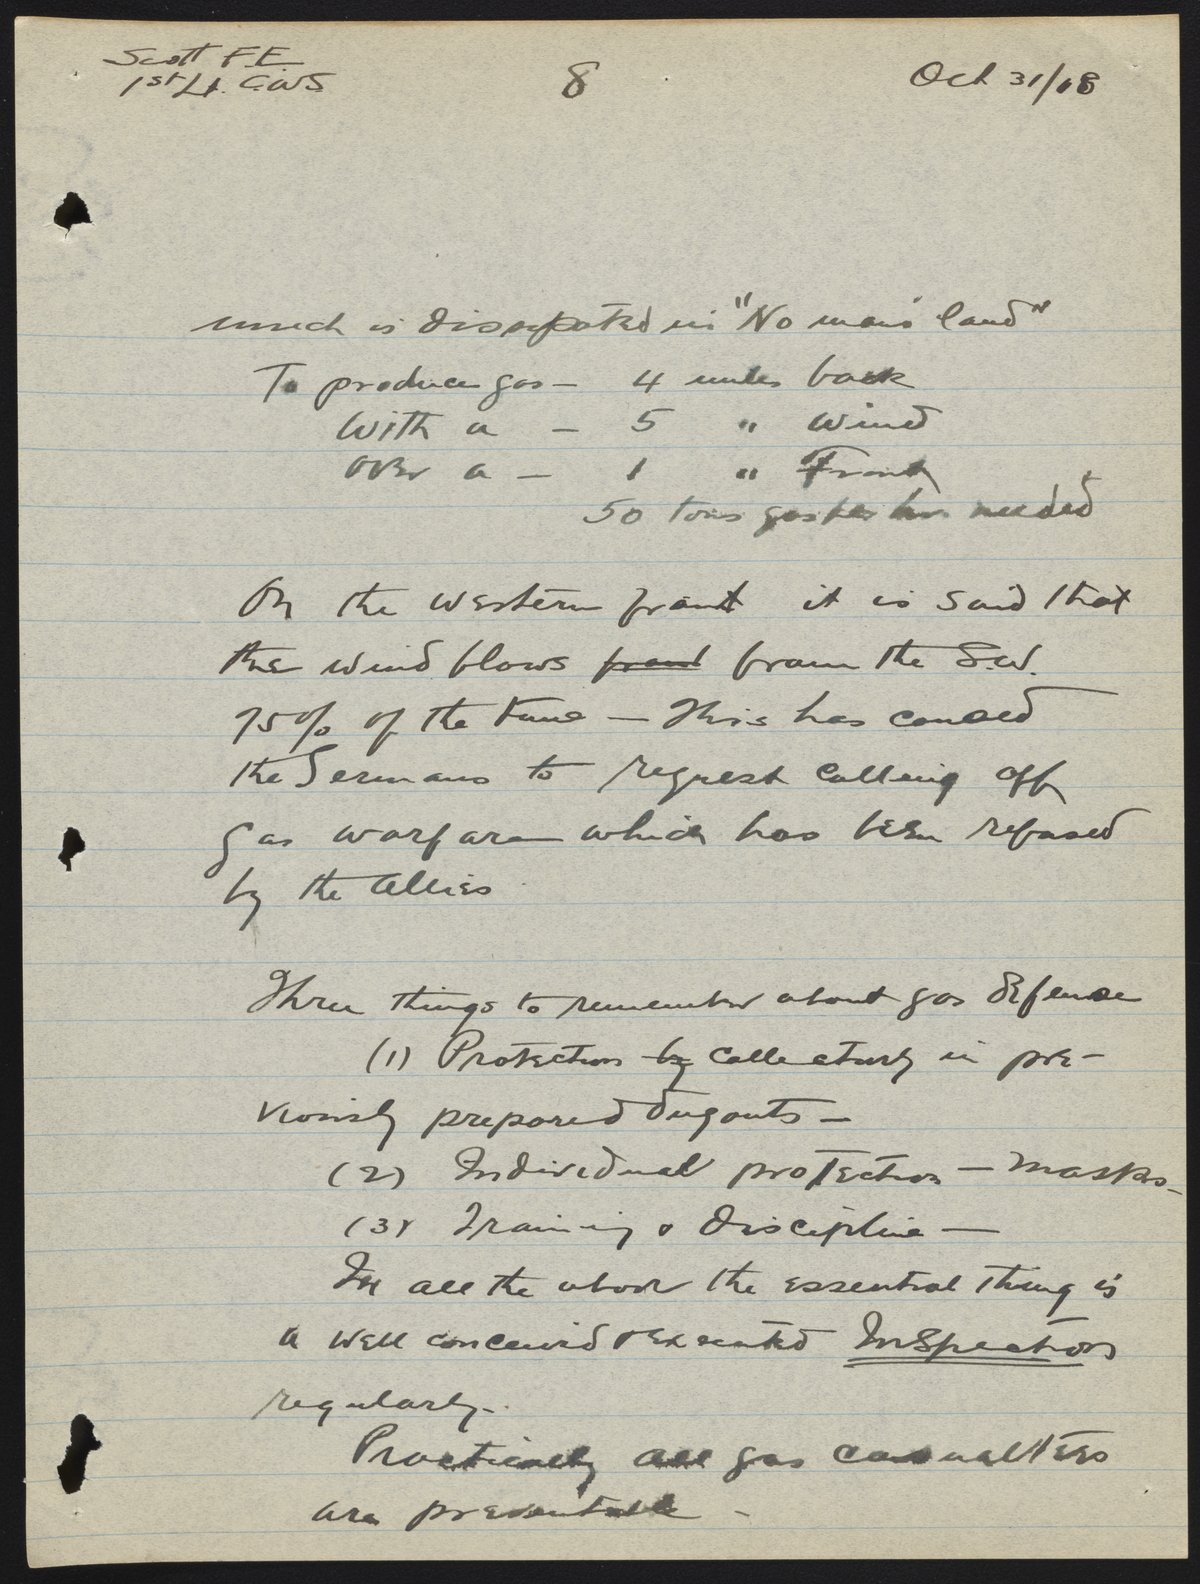 Scott F.E.
1st Lt. C.W.S.
8
Oct 31/18
much is dissipated in "No man's land"
To produce gas - 4 miles back
With a - 5 " Wind
over a - 1 " Front
50 tons gas per hr. needed
On the western front it is said that
the wind blows front from the S.W.
75% of the time - This has caused
the Germans to request calling off
gas warfare which has been refused
by the Allies
Three things to remember about gas defense
(1) Protection by collectively in pre-
viously prepared dugouts -
(2) Individual protection - Masks -
(3) Training & discipline -
In all the above the essential thing is
a well conceived & executed Inspection
regularly -
Practically all gas casualties
are preventable -